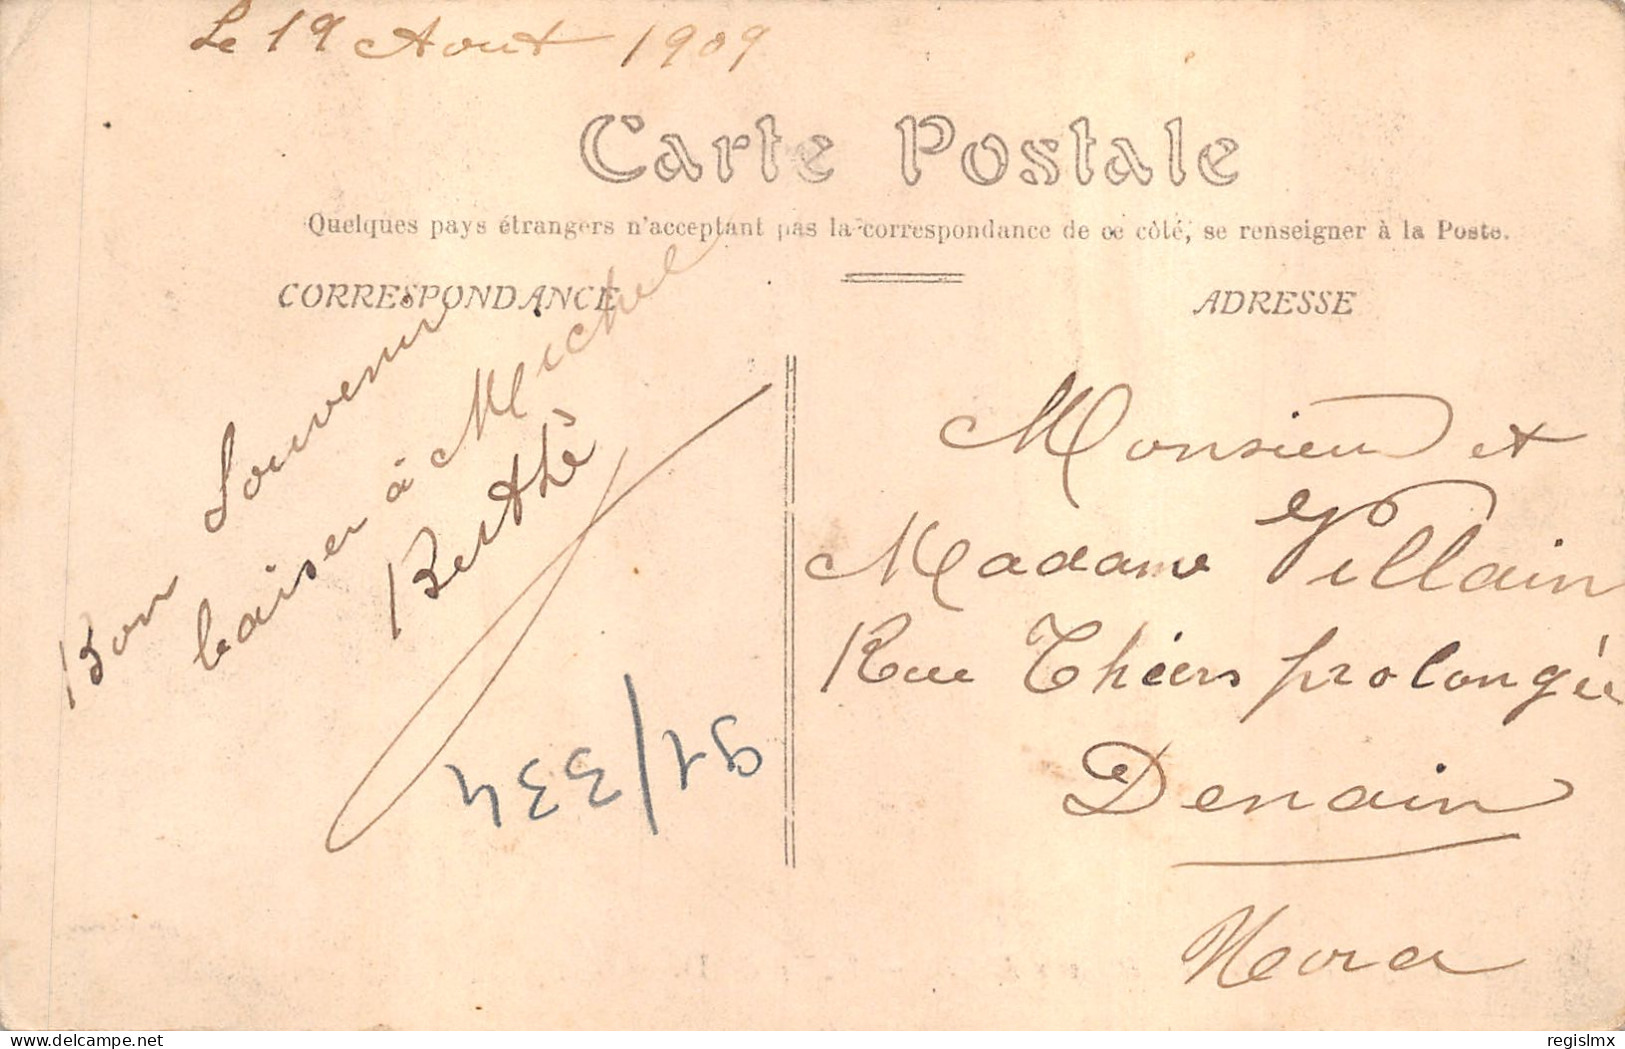 Le 19 Aout 1909
Carte Postale
Quelques pays étrangers n'acceptant pas la correspondance de ce côté, se renseigner à la Poste.
CORRESPONDANCE
Bon Souvenir
baiser à Michel
Berthe
91/334
ADRESSE
Monsieur et
Madame Villain
Rue Thiers prolongée
Denain
Nord
delcampe.net
regislmx